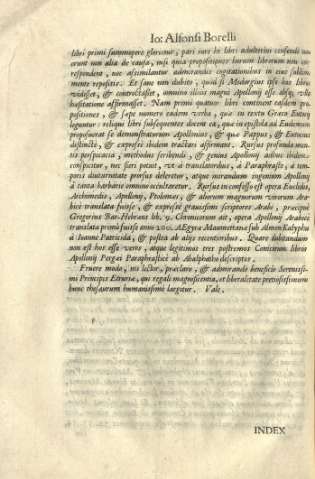 Io: Alfonsi Borelli
libri primi summopere gloriatur, pari iure hi libri adulterini censendi non
erunt vlla alia de causa, nisi quia propositiones horum librorum non cor-
respondent, nec assimilantur admirandis cogitationibus in eius subli
mente repositis. Et sane non dubito, quod si Midorgius ipse hos libros
vidisset, & contrectasset, omnino illos magni Apollonij esse absque vlla
hæsitatione affirmasset. Nam primi quatuor libri continent easdem pro
positiones, & sæpe numero eadem verba, quæ in textu Græci Eutocij
leguntur: reliqui libri subsequentes docent ea, quæ in epistola ad Eudemum
proposuerat se demonstraturum Apollonius, & quæ Pappus, & Eutocius
distinctè, & expressè ibidem tractari affirmant. Rursus profunda men-
tis perspicacia, methodus scribendi, & genius Apollonij adhuc ibidem
conspicitur, nec fieri potuit, vt à translatoribus, à Paraphraste, à tem-
poris diuturnitate prorsus deleretur, atque mirandum ingenium Apollonij
à tanta barbarie omnino occultaretur. Rursus in confesso est opera Euclidis,
Archimedis, Apollonij, Ptolemæi, & aliorum magnorum virorum Ara-
bicè translata fuisse, & expressè grauissimi scriptores Arabi, præcipuè
Gregorius Bar-Hebræus hb. 9. Chronicorum ait, opera Apollonij Arabicè
translata primò fuisse anno 200. AEgyræ Maumettanæ sub Almon Kalypha
à Ioanne Patricida, & postea ab alijs recentioribus. Quare dubitandum
non est hos esse veros, atque legitimos tres postremos Conicorum libros
Apollonij Pergæi Paraphrasticè ab Abalphatho descriptos.
Fruere modo, mi lector, præclaro, & admirando beneficio Serenissi-
mi Principis Etruriæ, qui regali magnificentia, et liberalitate pretiosissimum
hunc thesaurum humanissimè largitur. Vale.
INDEX